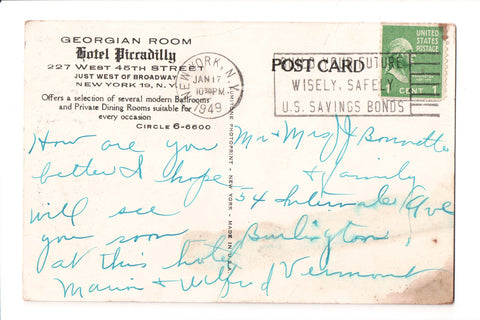 GEORGIAN ROOM
Hotel Piccadilly
227 WEST 45TH STREET
JUST WEST OF BROADWAY
NEW YORK 19, N.Y.
Offers a selection of several modern Ballrooms
and Private Dining Rooms suitable for
every occasion
CIRCLE 6-6600
NEW YORK, N.Y.
JAN 17
10 30 PM
1949
POST CARD
YOUR FUTURE
WISELY, SAFELY
U.S. SAVINGS BONDS
UNITED
STATES
POSTAGE
1 CENT 1
PHOTOPRINT - NEW YORK - MADE IN U.S.A.
How are you
better I hope
will see
you soon
at this hotel
Marion & Wilfred
Mr & Mrs J Bonnette
& family
54 Intervale Ave
Burlington
Vermont